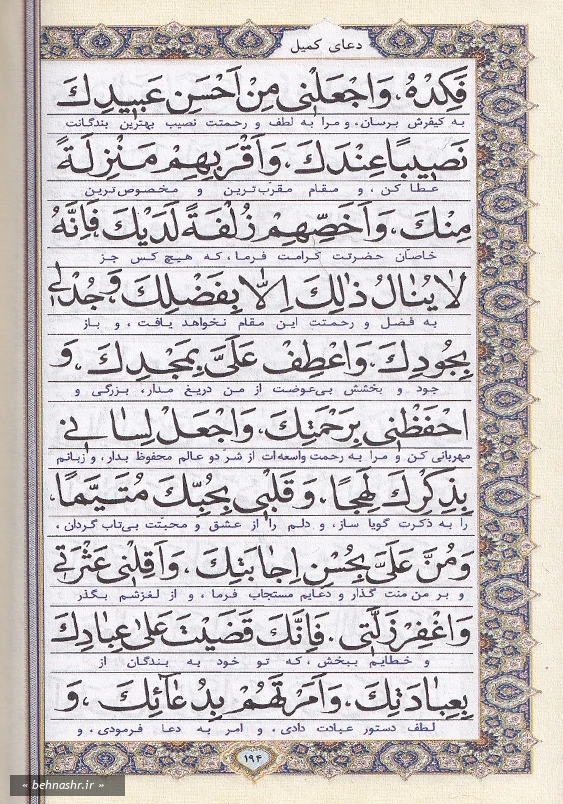 دعای کمیل
فَكِدْهُ، وَاجْعَلْنِی مِنْ اَحْسَنِ عَبِیدِكَ
به کیفرش برسان، و مرا به لطف و رحمتت نصیب بهترین بندگانت
نَصِیباً عِنْدَكَ، وَاَقْرَبِهِمْ مَنْزِلَةً
عطا کن، و مقام مقرّب‌ترین و مخصوص‌ترین
مِنْكَ، وَاَخَصِّهِمْ زُلْفَةً لَدَیْكَ فَاِنَّهُ
خاصّان حضرتت کرامت فرما، که هیچ کس جز
لاٰ یُنٰالُ ذٰلِكَ اِلاّٰ بِفَضْلِكَ، وَ جُدْ لِی
به فضل و رحمتت این مقام نخواهد یافت، و باز
بِجُودِكَ، وَاعْطِفْ عَلَیَّ بِمَجْدِكَ، وَ
جود و بخشش بی‌عوضت از من دریغ مدار، بزرگی و
احْفَظْنِی بِرَحْمَتِكَ، وَاجْعَلْ لِسٰانِی
مهربانی کن و مرا به رحمت واسعه‌ات از شر دو عالم محفوظ بدار، و زبانم
بِذِكْرِكَ لَهِجًا، وَ قَلْبِی بِحُبِّكَ مُتَیَّمًا،
را به ذکرت گویا ساز، و دلم را از عشق و محبّتت بی‌تاب گردان،
وَمُنَّ عَلَیَّ بِحُسْنِ اِجٰابَتِكَ، وَاَقِلْنِی عَثْرَتِی
و بر من منت گذار و دعایم مستجاب فرما، و از لغزشم بگذر
وَاغْفِرْ زَلَّتِی، فَاِنَّكَ قَضَیْتَ عَلیٰ عِبٰادِكَ
و خطایم ببخش، که تو خود به بندگان از
بِعِبٰادَتِكَ، وَاَمَرْتَهُمْ بِدُعٰآئِكَ، وَ
لطف دستور عبادت دادی، و امر به دعا فرمودی، و
۱۹۴
« behnashr.ir »